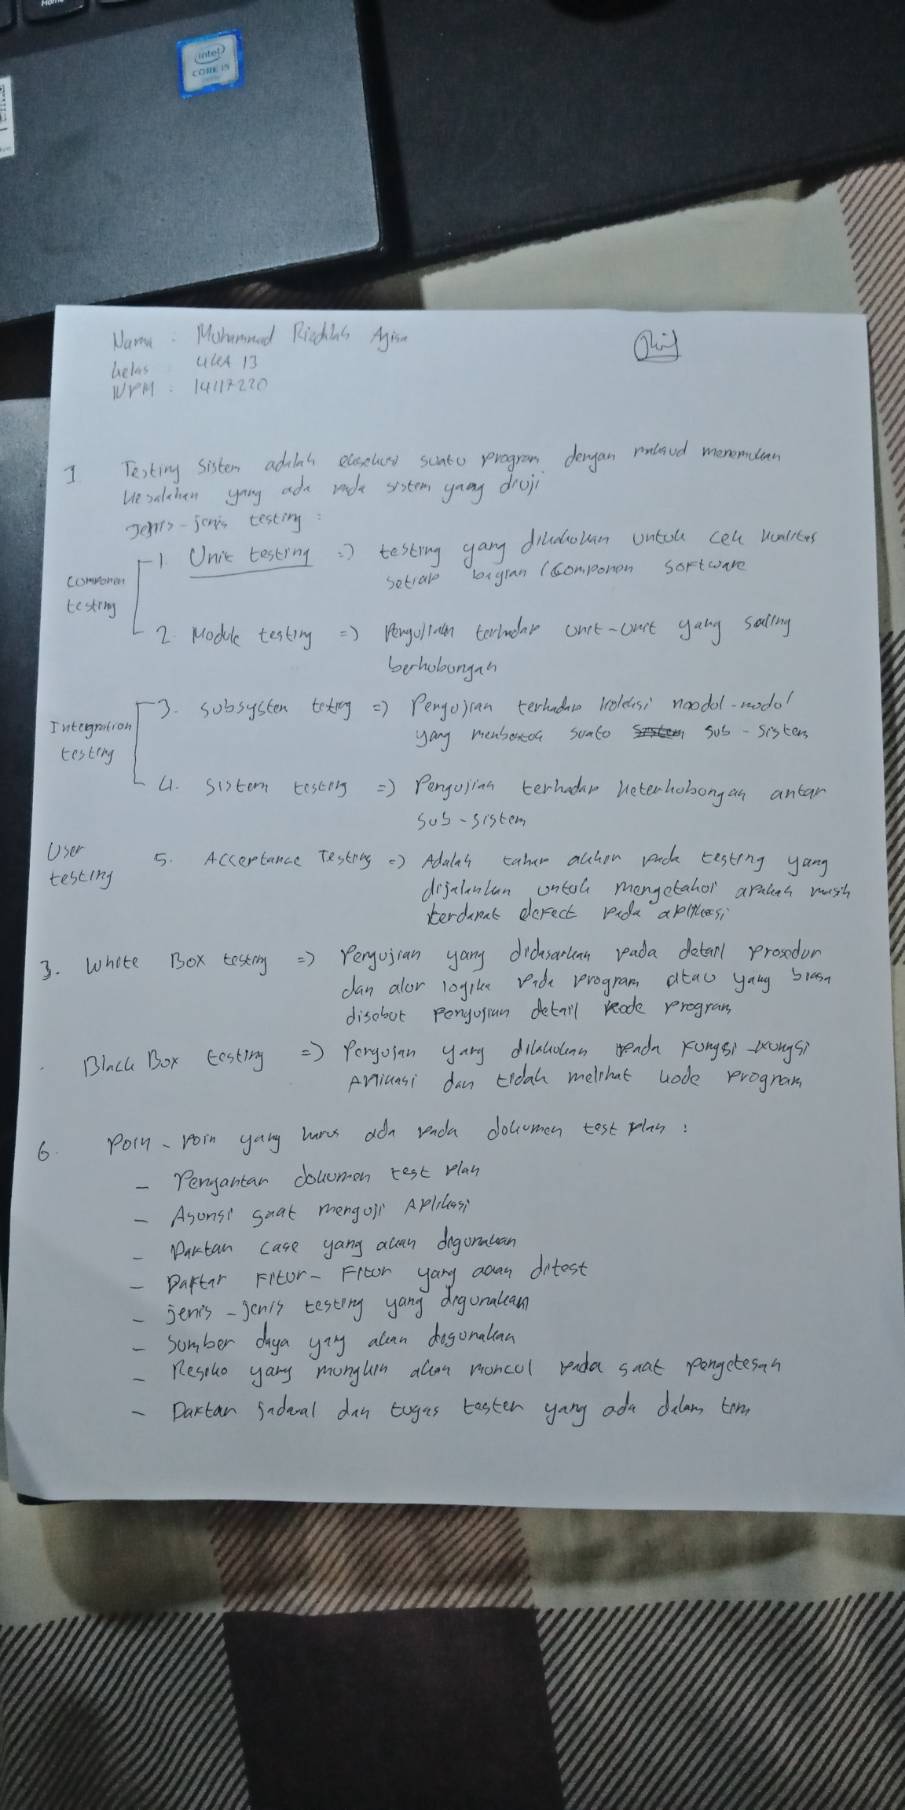 intel
CORE i5
Nama : Muhammad Rizdhah Agisa
kelas : 4KA 13
NPM : 14117220
1 Testing Sistem adalah eksekusi suatu program dengan maksud menemukan
kesalahan yang ada pada sistem yang diuji
Jenis-jenis testing :
Componen testing
1. Unit testing => testing yang dilakukan untuk cek kualitas
setiap bagian / komponen software
2. Module testing => Pengujian terhadap unit-unit yang saling
berhubungan
Integration testing
3. Subsystem testing => Pengujian terhadap koleksi modul-modul
yang membentuk suatu sub-sistem
4. Sistem testing => Pengujian terhadap keterhubungan antar
sub-sistem
User testing
5. Acceptance Testing => Adalah tahap akhir pada testing yang
dijalankan untuk mengetahui apakah masih
terdapat defect pada aplikasi
3. White Box testing => Pengujian yang didasarkan pada detail prosedur
dan alur logika pada program atau yang biasa
disebut pengujian detail kode program
Black Box testing => Pengujian yang dilakukan pada fungsi-fungsi
Aplikasi dan tidak melihat kode program
6. Poin-poin yang harus ada pada dokumen test plan :
- Pengantar dokumen test plan
- Asumsi saat menguji Aplikasi
- Daftar case yang akan digunakan
- Daftar Fitur-Fitur yang akan ditest
- jenis-jenis testing yang digunakan
- Sumber daya yang akan digunakan
- Resiko yang mungkin akan muncul pada saat pengetesan
- Daftar jadwal dan tugas tester yang ada dalam tim